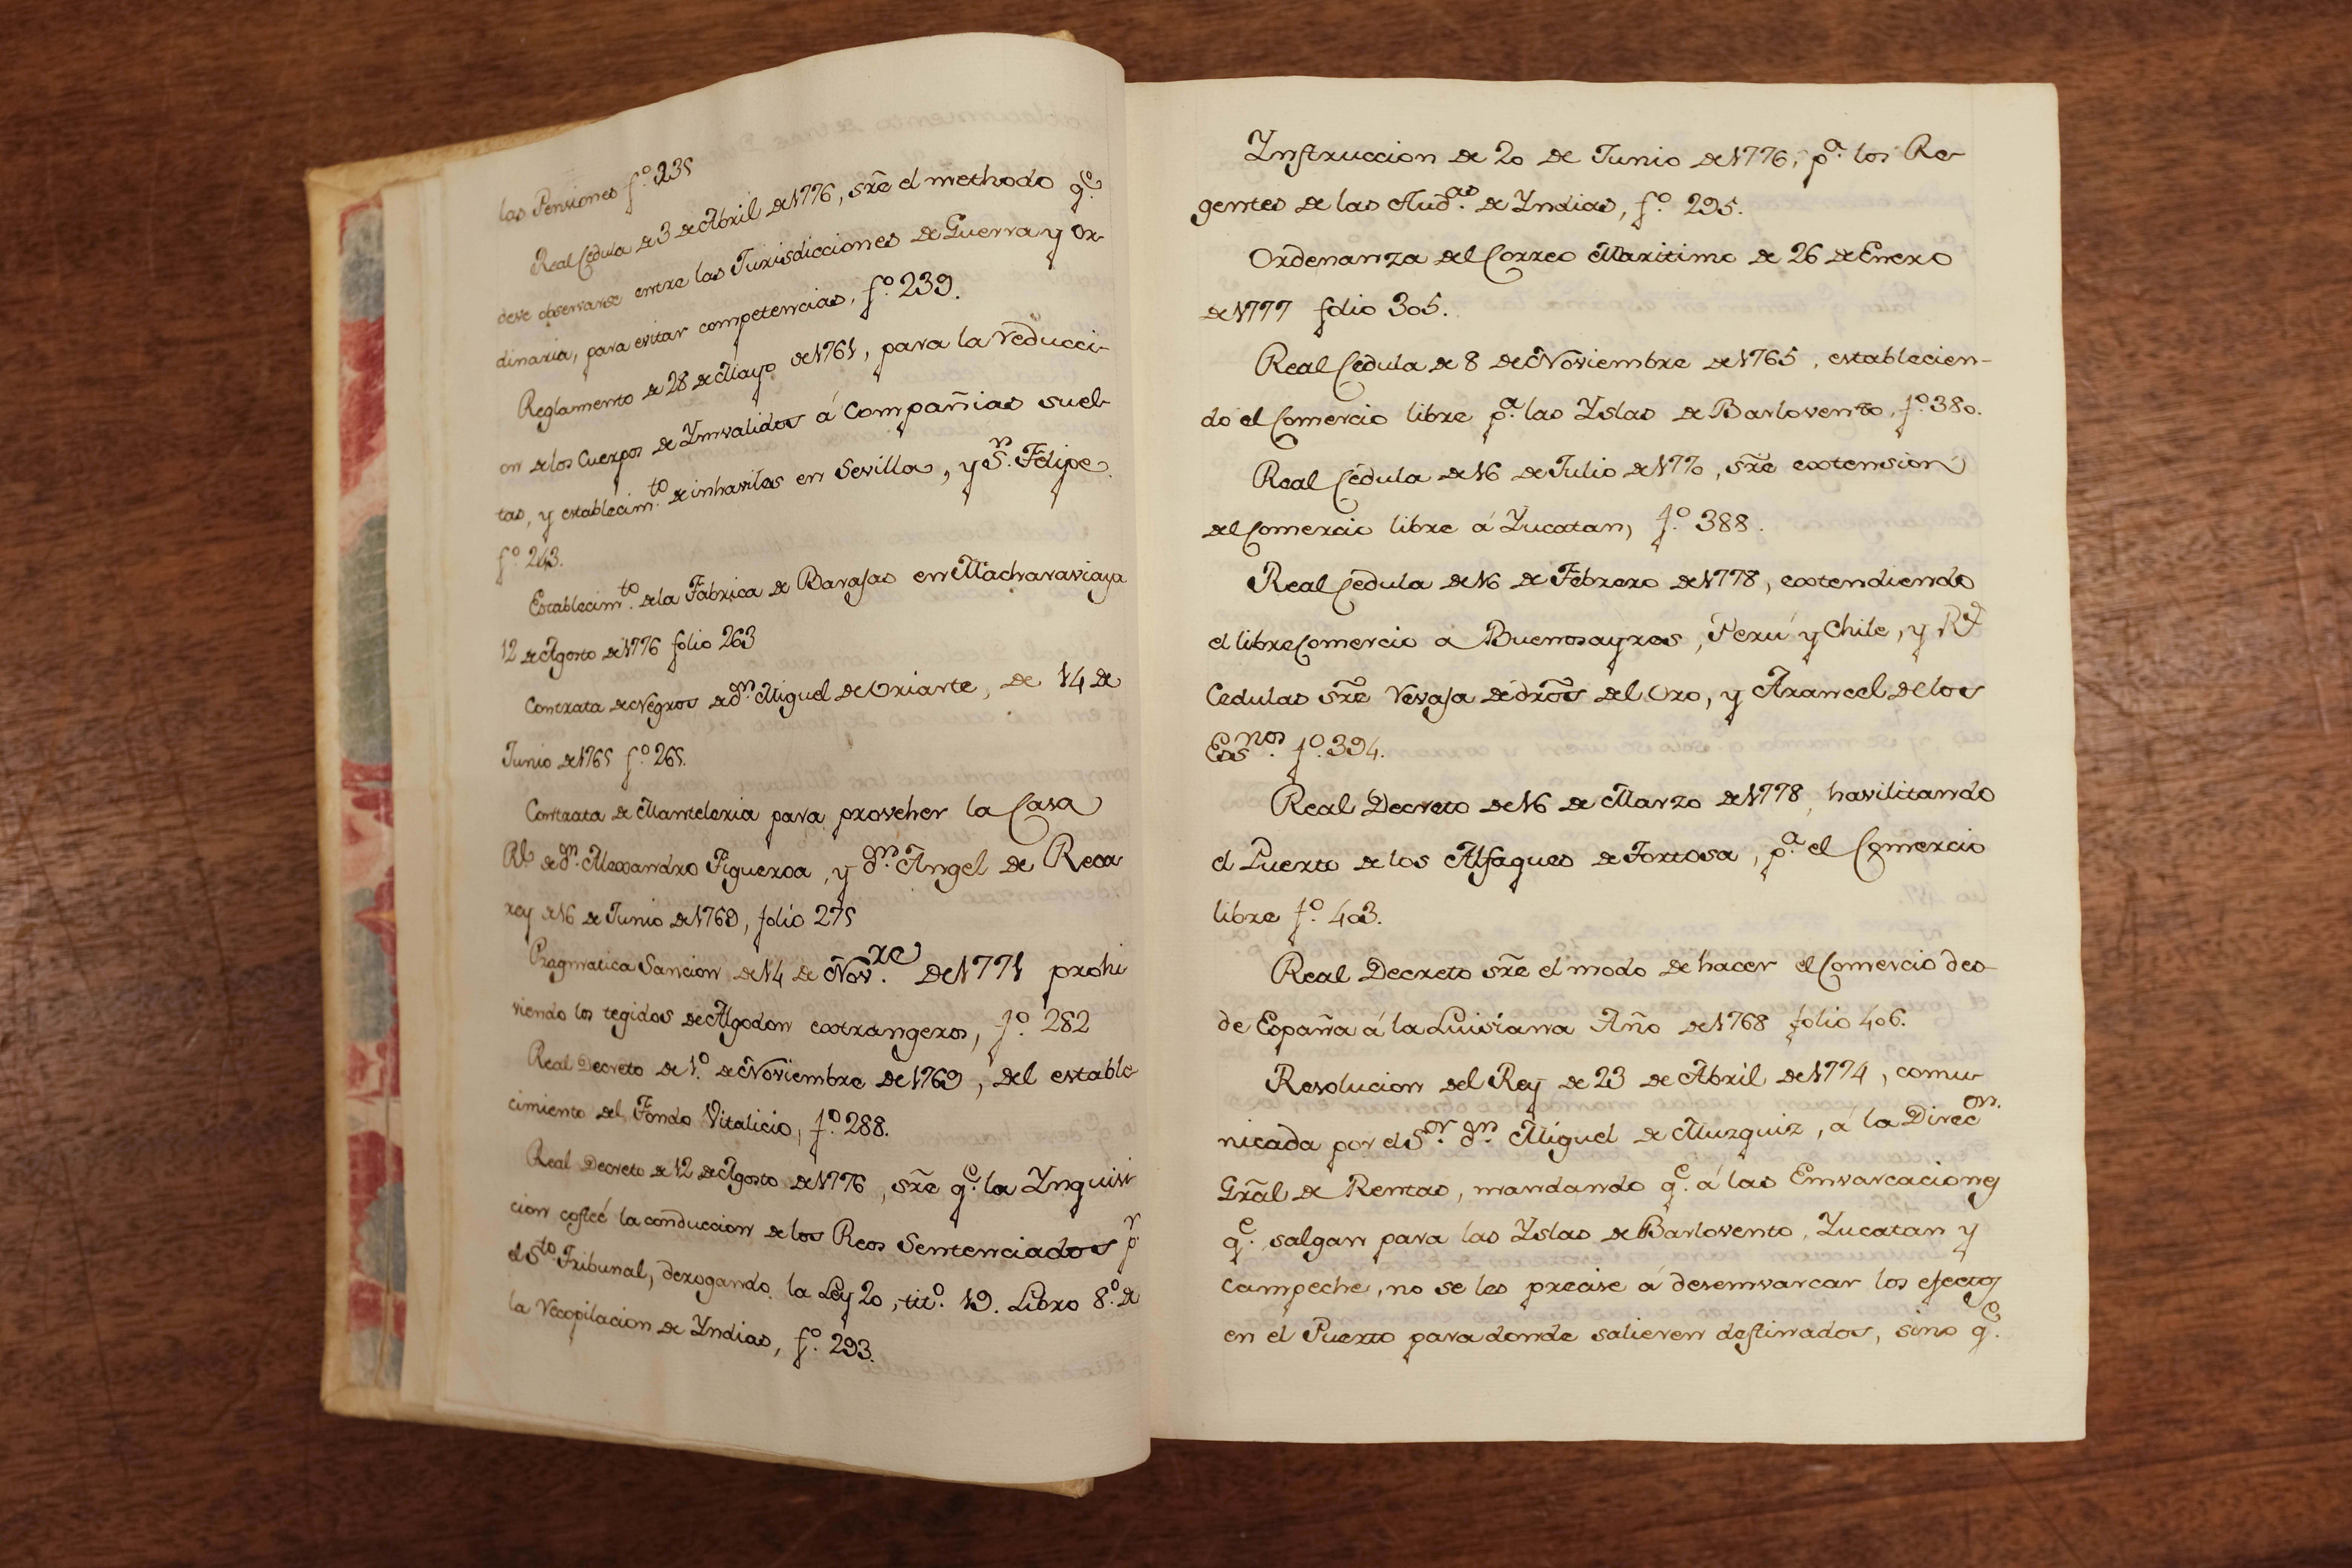 las Pensiones f.º 235
Real Cedula de 3 de Abril de 1776, sr̃e el methodo q.e
deve observarse entre las Jurisdicciones de Guerra y Or-
dinaria, para evitar competencias, f.º 239.
Reglamento de 28 de Mayo de 1761, para la reducci-
on de los Cuerpos de Ynvalidos á Compañias suel-
tas, y establecim.to de inhaviles en Sevilla, y S.n Felipe
f.º 243.
Establecim.to de la Fabrica de Barajas en Macharaviaya
12 de Agosto de 1776 folio 263
Contrata de Negros de d.n Miguel de Uriarte, de 14 de
Junio de 1765 f.º 265.
Contrata de Manteleria para proveher la Casa
Rl. de d.n Alexandro Figueroa, y d.n Angel de Reca
rey de 16 de Junio de 1769, folio 275
Pragmatica Sancion de 14 de Nov.re de 1771 prohi
viendo los tegidos de Algodon extrangeros, f.º 282
Real Decreto de 1.º de Noviembre de 1769, del estable
cimiento del Fondo Vitalicio, f.º 288.
Real Decreto de 12 de Agosto de 1776, sr̃e q.e la Ynquisi
cion costeé la conduccion de los Reos Sentenciados p.r
el S.to Tribunal, derogando la Ley 20, tit.º 19. Libro 8.º de
la recopilacion de Yndias, f.º 293.
Ynstruccion de 20 de Junio de 1776, p.a los Re-
gentes de las Aud.as de Yndias, f.º 295.
Ordenanza del Correo Maritimo de 26 de Enero
de 1777 folio 305.
Real Cedula de 8 de Noviembre de 1765, establecien-
do el Comercio libre p.a las Yslas de Barlovento, f.º 380.
Real Cedula de 16 de Julio de 1770, sr̃e extension
del Comercio libre á Yucatan, f.º 388.
Real Cedula de 16 de Febrero de 1778, extendiendo
el libre Comercio a Buenosayres, Perú y Chile, y
Cedulas sr̃e revaja de dr̃os del Oro, y Arancel de los
Ess.nos f.º 394.
Real Decreto de 16 de Marzo de 1778, havilitando
el Puerto de los Alfaques de Tortosa, p.a el Comercio
libre f.º 403.
Real Decreto sr̃e el modo de hacer el Comercio des-
de España á la Luisiana Año de 1768 folio 406.
Resolucion del Rey de 23 de Abril de 1774, comu-
nicada por el S.or d.n Miguel de Muzquiz, á la Direc.on
Gr̃al de Rentas, mandando q.e á las Emvarcaciones
q.e salgan para las Yslas de Barlovento, Yucatan y
Campeche, no se les precise á desemvarcar los efectos
en el Puerto para donde salieren destinados, sino q.e